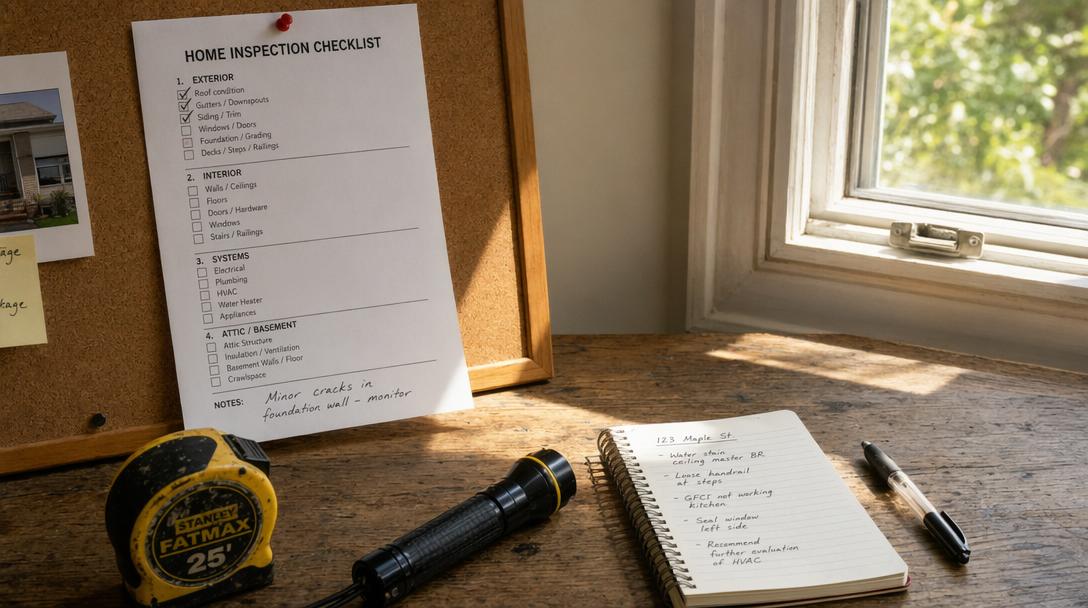 HOME INSPECTION CHECKLIST
1. EXTERIOR
Roof condition
Gutters / Downspouts
Siding / Trim
Windows / Doors
Foundation / Grading
Decks / Steps / Railings
2. INTERIOR
Walls / Ceilings
Floors
Doors / Hardware
Windows
Stairs / Railings
3. SYSTEMS
Electrical
Plumbing
HVAC
Water Heater
Appliances
4. ATTIC / BASEMENT
Attic Structure
Insulation / Ventilation
Basement Walls / Floor
Crawlspace
NOTES: Minor cracks in
foundation wall – monitor
STANLEY
FATMAX
25'
123 Maple St.
- Water stain
ceiling master BR
- Loose handrail
at steps
- GFCI not working
kitchen
- Seal window
left side
- Recommend
further evaluation
of HVAC